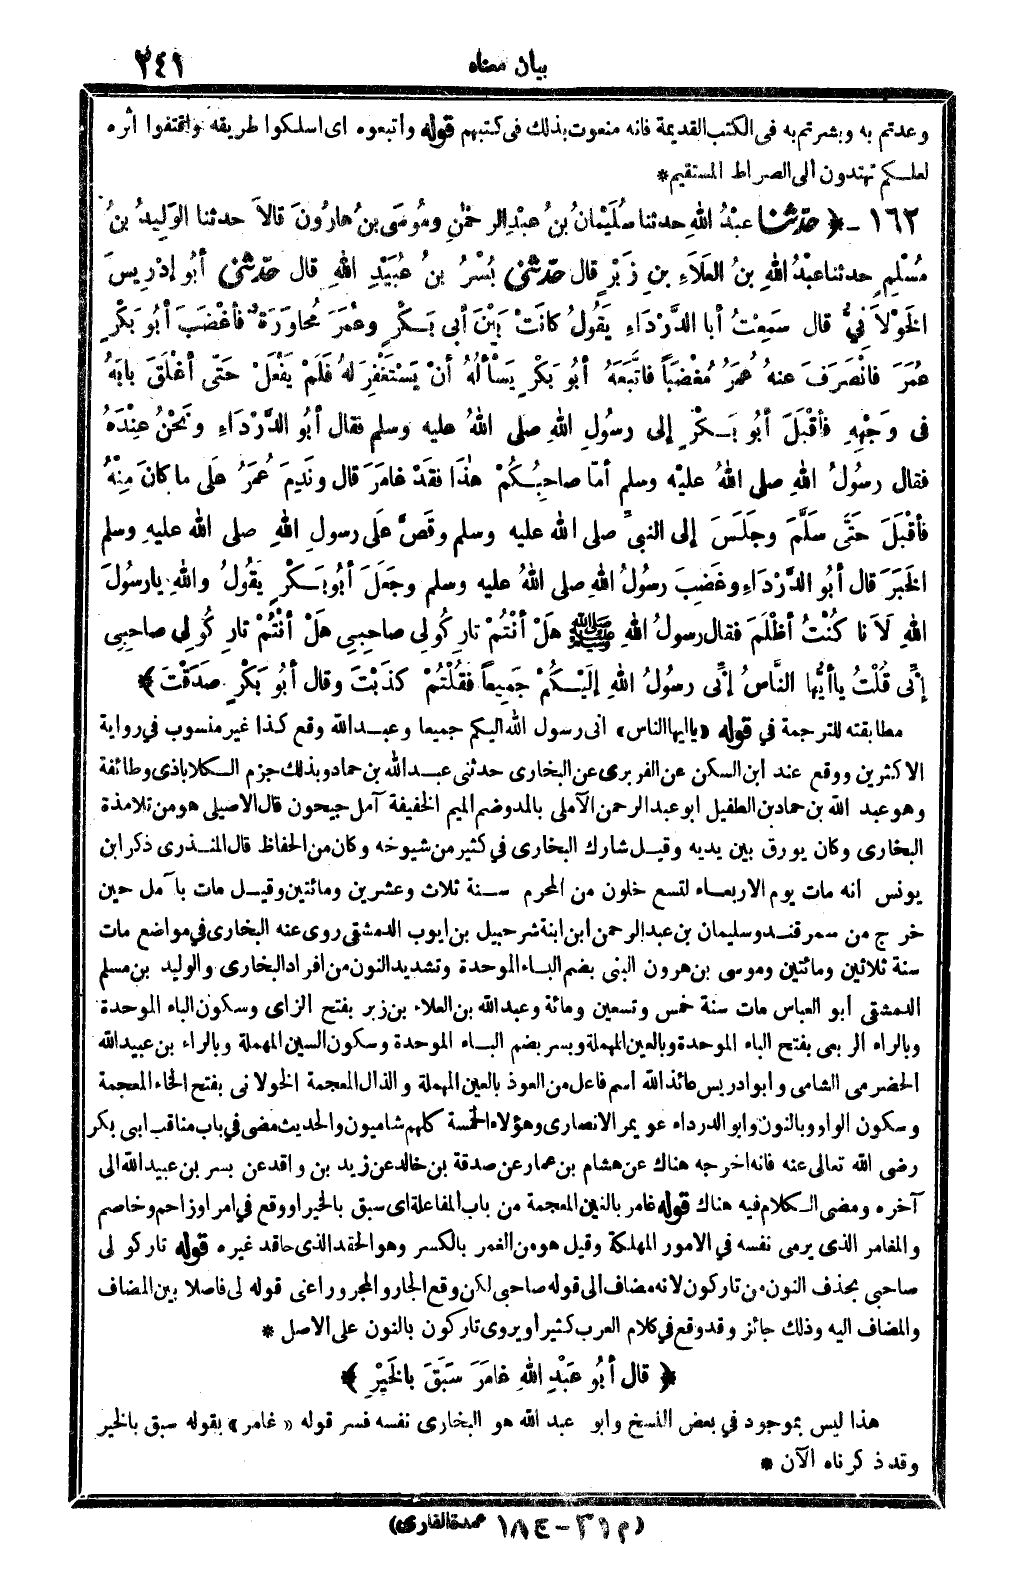 بيان معناه ٢٤١
وعدتم به وبشرتم به فى الكتب القديمة فانه منعوت بذلك فى كتبهم قوله واتبعوه اى اسلكوا طريقه واقتفوا اثره
لعلكم تهتدون الى الصراط المستقيم *
١٦٢ - ﴿ حَدَّثَنَا عَبْدُ اللهِ حدثنا سُلَيْمَانُ بنُ عَبْدِ الرَّحْمٰنِ ومُوسَى بنُ هارُونَ قالاَ حدثنا الوَلِيدُ بنُ
مُسْلِمٍ حدثنا عبْدُ اللهِ بنُ العَلاَءِ بنِ زَبْرٍ قال حدّثنى بُسْرُ بنُ عُبَيْدِ اللهِ قال حدّثنى أبُو إدْرِيسَ
الخَوْلاَنِيُّ قال سَمِعْتُ أبا الدَّرْدَاءِ يَقُولُ كانَتْ بَيْنَ أبى بَكْرٍ وعُمَرَ مُحاوَرَةٌ فأغْضَبَ أبُو بَكْرٍ
عُمَرَ فانْصَرَفَ عنهُ عُمَرُ مُغْضَبَاً فاتَّبَعَهُ أبُو بَكْرٍ يَسْألُهُ أنْ يَسْتَغْفِرَ لهُ فَلَمْ يَفْعَلْ حَتَّى أغْلَقَ بابَهُ
فى وَجْهِهِ فأقْبَلَ أبُو بَكْرٍ إلى رسُولِ اللهِ صلى اللهُ عليه وسلم فقال أبُو الدَّرْدَاءِ ونَحْنُ عِنْدَهُ
فقال رسُولُ اللهِ صلى اللهُ عليْه وسلم أمّا صاحِبُكُمْ هٰذَا فقَدْ غامَرَ قال ونَدِمَ عُمَرُ عَلَى ما كانَ مِنْهُ
فأقْبَلَ حَتَّى سَلَّمَ وجَلَسَ إلى النبىِّ صلى الله عليه وسلم وقَصَّ عَلَى رسولِ اللهِ صلى الله عليه وسلم
الخَبَرَ قال أبُو الدَّرْدَاءِ وغَضِبَ رسُولُ اللهِ صلى اللهُ عليه وسلم وجَعَلَ أبُو بَكْرٍ يقُولُ واللهِ يا رسُولَ
اللهِ لَأَنَا كُنْتُ أظْلَمَ فقال رسولُ اللهِ ﷺ هَلْ أنْتُمْ تارِكُو لِى صاحِبِى هَلْ أنْتُمْ تارِكُو لِى صاحِبِى
إنِّى قُلْتُ يا أيُّها النَّاسُ إنِّى رسُولُ اللهِ إلَيْكُمْ جَمِيعاً فَقُلْتُمْ كَذَبْتَ وقال أبُو بَكْرٍ صَدَقْتَ ﴾ *
مطابقته للترجمة فى قوله «يا ايها الناس» انى رسول الله اليكم جميعا وعبد الله وقع كذا غير منسوب فى رواية
الاكثرين ووقع عند ابن السكن عن الفربرى عن البخارى حدثنى عبد الله بن حماد وبذلك جزم الكلاباذى وطائفة
وهو عبد الله بن حماد بن الطفيل ابو عبد الرحمن الآملى بالمد وضم الميم الخفيفة آمل جيحون قال الاصيلى هو من تلامذة
البخارى وكان يورق بين يديه وقيل شارك البخارى فى كثير من شيوخه وكان من الحفاظ قال المنذرى ذكر ابن
يونس انه مات يوم الاربعاء لتسع خلون من المحرم سنة ثلاث وعشرين ومائتين وقيل مات بآمل حين
خرج من سمرقند وسليمان بن عبد الرحمن ابن ابنة شرحبيل بن ايوب الدمشقى روى عنه البخارى فى مواضع مات
سنة ثلاثين ومائتين وموسى بن هرون البنى بضم الباء الموحدة وتشديد النون من افراد البخارى والوليد بن مسلم
الدمشقى أبو العباس مات سنة خمس وتسعين ومائة وعبد الله بن العلاء بن زبر بفتح الزاى وسكون الباء الموحدة
وبالراء الربعى بفتح الباء الموحدة وبالعين المهملة وبسر بضم الباء الموحدة وسكون السين المهملة وبالراء بن عبيد الله
الحضرمى الشامى وابو ادريس عائذ الله اسم فاعل من العوذ بالعين المهملة والذال المعجمة الخولانى بفتح الخاء المعجمة
وسكون الواو وبالنون وابو الدرداء عويمر الانصارى وهؤلاء الخمسة كلهم شاميون والحديث مضى فى باب مناقب ابى بكر
رضى الله تعالى عنه فانه اخرجه هناك عن هشام بن عمار عن صدقة بن خالد عن زيد بن واقد عن بسر بن عبيد الله الى
آخره ومضى الكلام فيه هناك قوله غامر بالغين المعجمة من باب المفاعلة اى سبق بالخير او وقع فى امر او زاحم وخاصم
والمغامر الذى يرمى نفسه فى الامور المهلكة وقيل هو من الغمر بالكسر وهو الحقد الذى حاقد غيره قوله تاركو لى
صاحبى بحذف النون من تاركون لانه مضاف الى قوله صاحبى لكن وقع الجار والمجرور اعنى قوله لى فاصلا بين المضاف
والمضاف اليه وذلك جائز وقد وقع فى كلام العرب كثيرا ويروى تاركون بالنون على الاصل *
﴿ قال أبُو عَبْدِ اللهِ غامَرَ سَبَقَ بالخَيْرِ ﴾
هذا ليس بموجود فى بعض النسخ وابو عبد الله هو البخارى نفسه فسر قوله «غامر» بقوله سبق بالخير
وقد ذكرناه الآن *
(م ٣١ - ١٨٤ عمدة القارى)